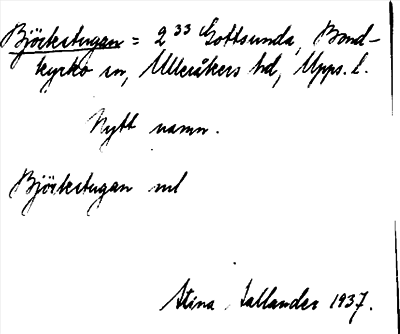 Björkstugan = 2³³ Gottsunda, Bond-
kyrko sn, Ulleråkers hd, Upps. l.
Nytt namn.
Björkstugan ml
Stina Sallander 1937.